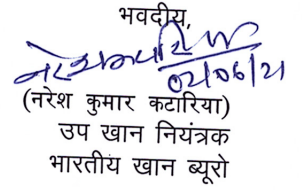 भवदीय,
02/06/21
(नरेश कुमार कटारिया)
उप खान नियंत्रक
भारतीय खान ब्यूरो